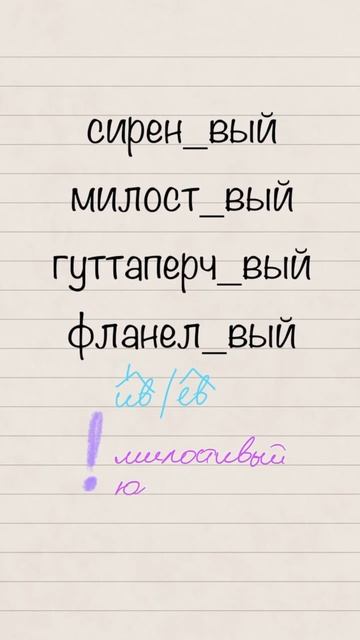 сирен_вый
милост_вый
гуттаперч_вый
фланел_вый
ив/ев
! милостивый
ю